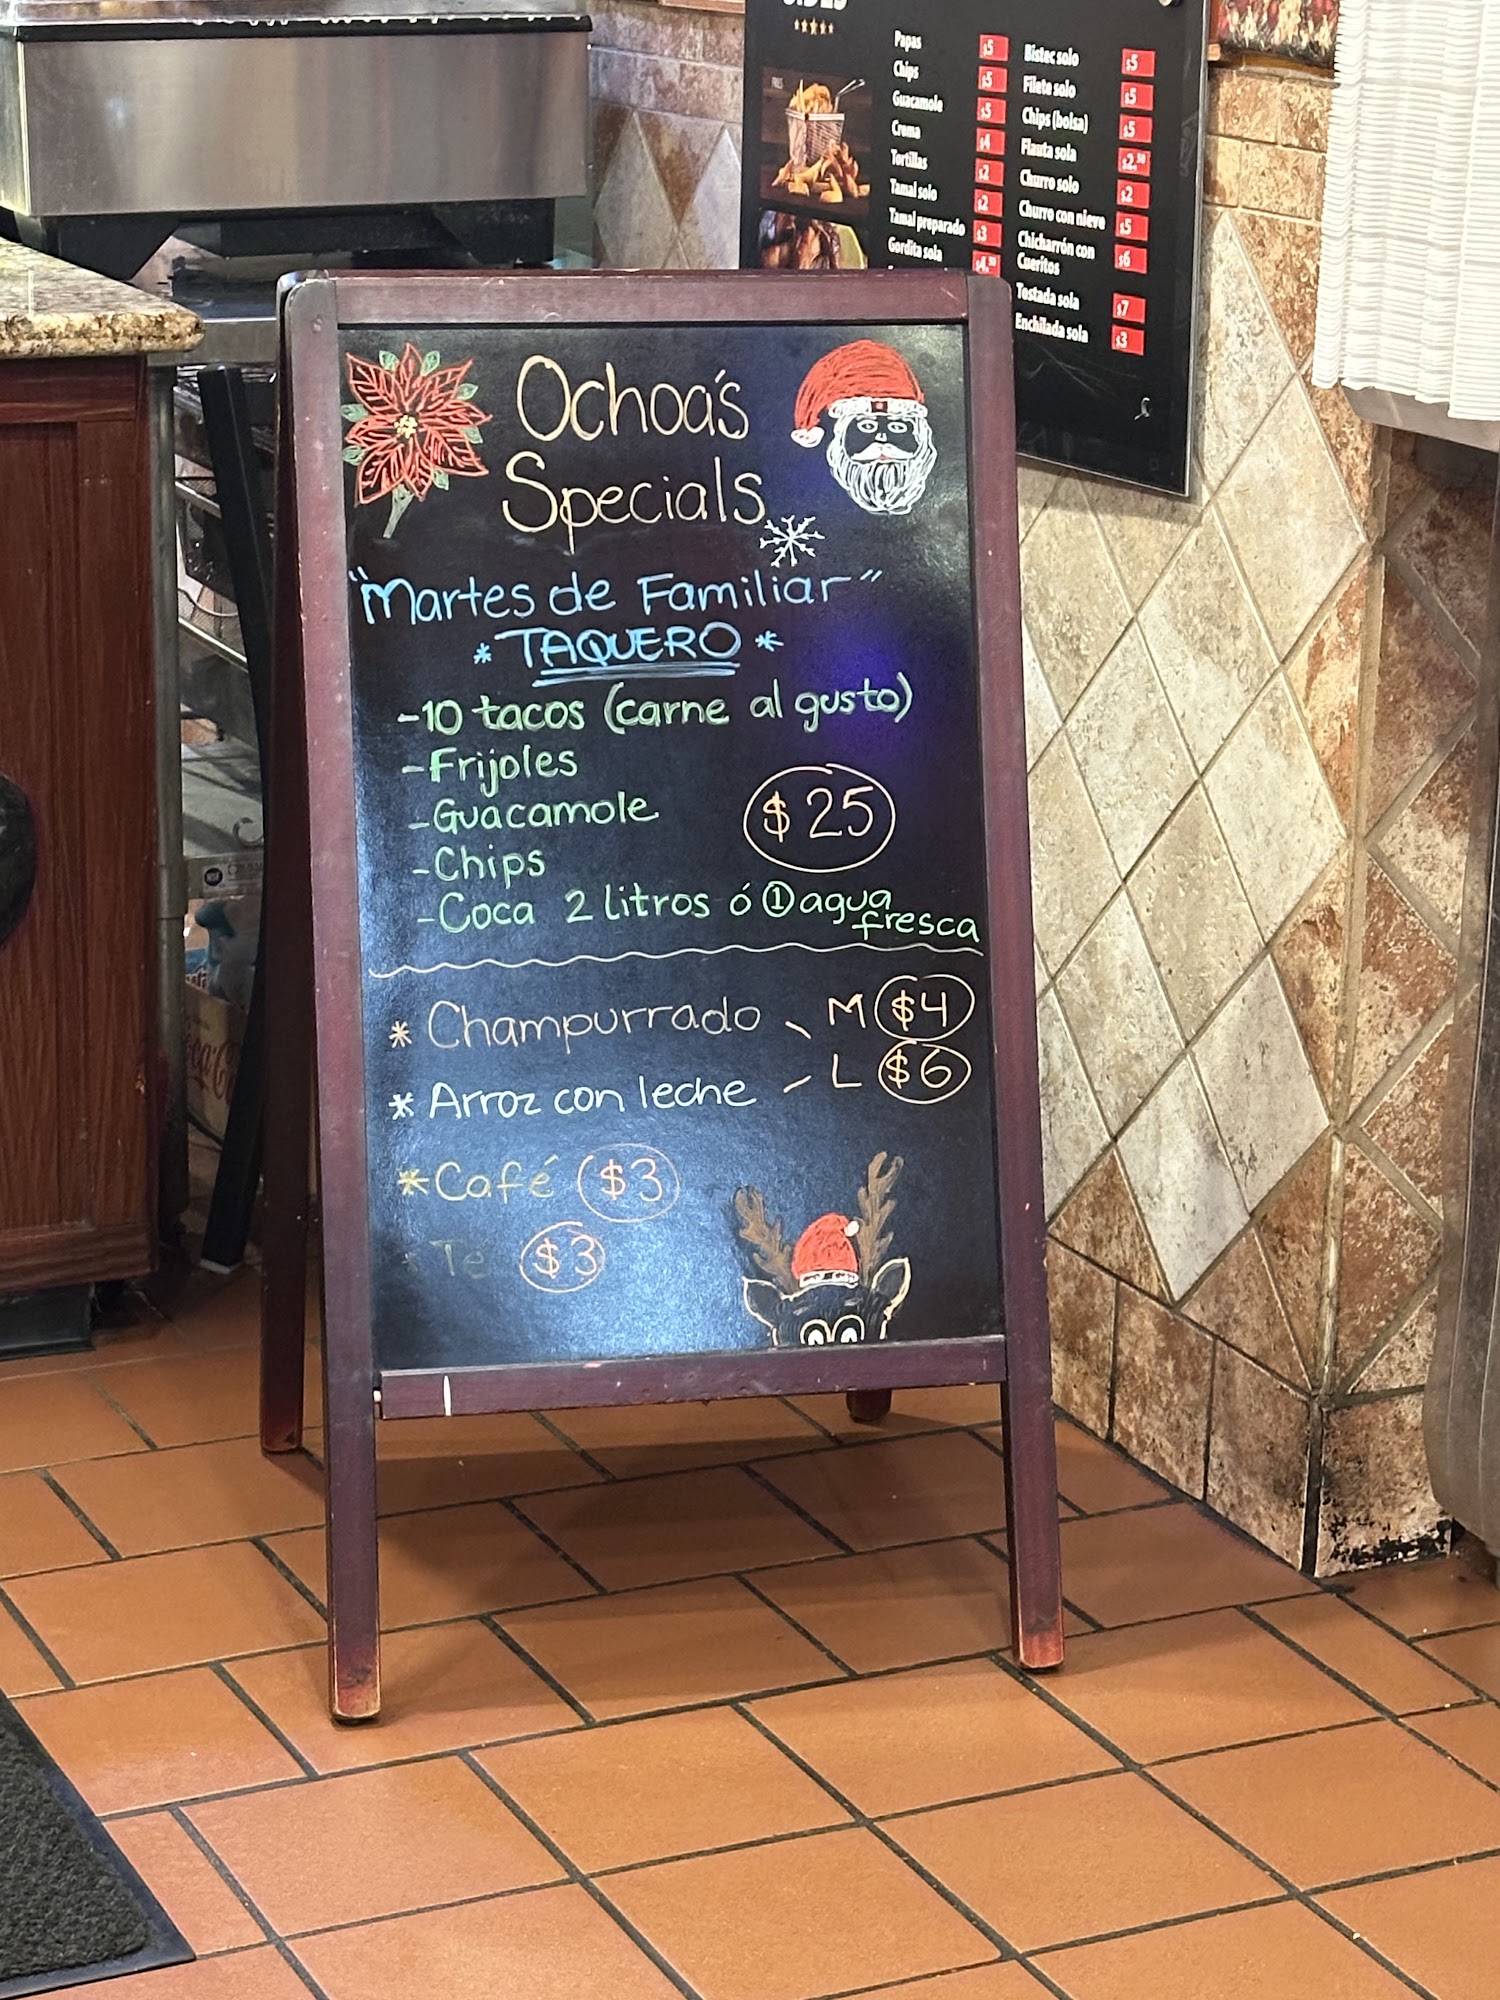 Papas $5
Chips $5
Guacamole $5
Crema $4
Tortillas $2
Tamal solo $2
Tamal preparado $3
Gordita sola $4.50
Bistec solo $5
Filete solo $5
Chips (bolsa) $5
Flauta sola $2.50
Churro solo $2
Churro con nieve $5
Chicharrón con
Cueritos $6
Tostada sola $7
Enchilada sola $3
Ochoa's
Specials
"Martes de Familiar"
* TAQUERO *
-10 tacos (carne al gusto)
-Frijoles
-Guacamole
$25
-Chips
-Coca 2 litros ó ① agua
fresca
* Champurrado M $4
* Arroz con leche L $6
*Café $3
* Te $3